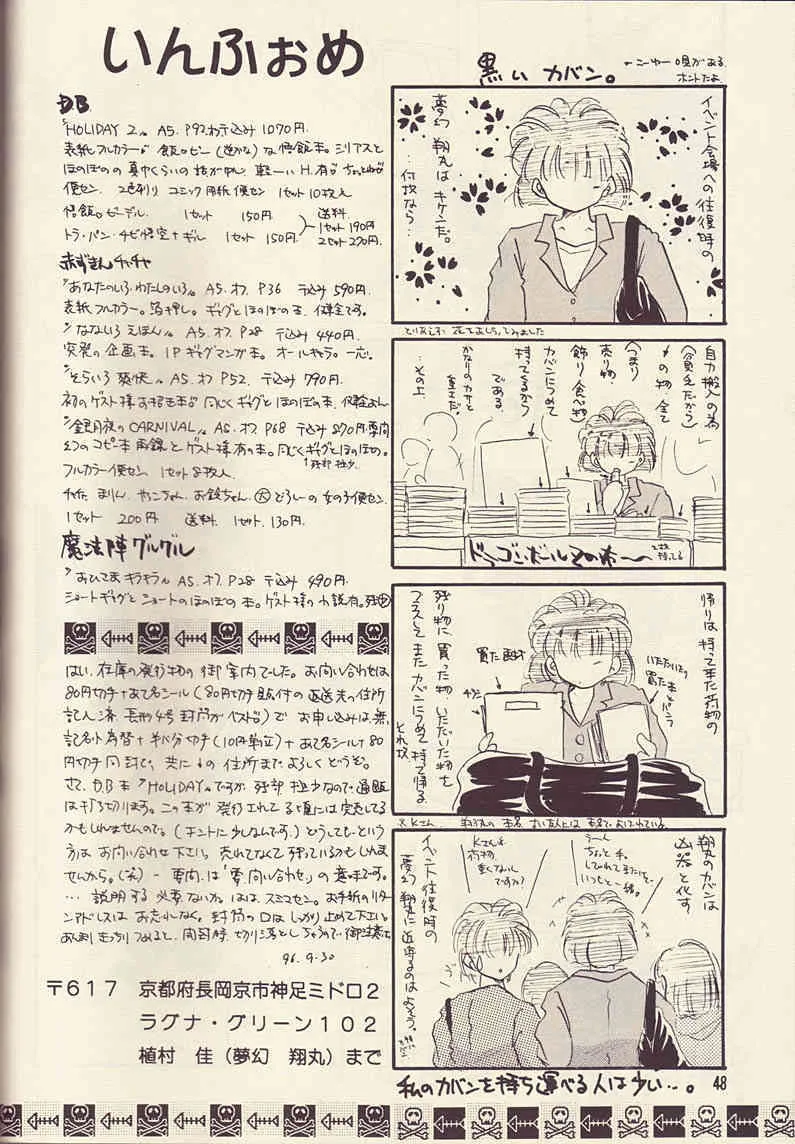 いんふぉめ
D.B.
「HOLIDAY 2」 A5. P92. わ 〒込み 1070円.
表紙フルカラー
便セン 2色刷り コミック用紙便セン 1セット10枚入
悟飯。ビーデル. 1セット 150円
トラ・パン・チビ悟空+ギル 1セット 150円
送料
1セット 190円
2セット 270円.
赤ずきんチャチャ
「あなたのいろ、わたしのいろ」 A5. オフ. P36 〒込み 590円.
表紙フルカラー。箔押し。ギャグとほのぼの本. 健全です。
「なないろ えほん」 A5. オフ. P28 〒込み 440円.
突発の企画本。1Pギャグマンガ本。オールキャラ。一応。
「そらいろ 爽快」 A5. オフ P52. 〒込み 790円.
「銀月夜の CARNIVAL」 A5. オフ. P68 〒込み 890円. 要問
幻のコピー本再録とゲスト様有の本。同じくギャグとほのぼの。
残部極少
フルカラー便セン 1セット8枚入
1セット 200円 送料. 1セット. 130円.
魔法陣グルグル
「おひさま キラキラ」 A5. オフ. P28 〒込み 490円.
ショートギャグとショートのほのぼの本。ゲスト様の小説有。残少
はい. 在庫の発行物の御案内でした。お問い合わせは
80円切手+あて名シール(80円切手貼付の返送先の住所
記入済. 長形4号封筒がベスト)で お申し込みは. 無
記名小為替+半分切手(10円単位)+あて名シール+80
円切手同封で、共に↓の住所まで、よろしくどうぞ。
さて D.B本「HOLIDAY」ですが. 残部極少なので. 通販
は〆切ります。この本が発行されてる頃には完売してる
かもしれませんので。(ホントに少しなんです.)どうしてもという
方は. お問い合わせ下さい。売れてなくて残っているかもしれま
せんから。(笑) - 要問.は「要.問い合わせ」の意味です。
… 説明する必要ないか。はは. スミマセン。お手紙のリタ
ーンアドレスはお忘れなく。封筒の口はしっかり止めて下さい。
96. 9.30
〒617 京都府長岡京市神足ミドロ2
ラグナ・グリーン102
植村 佳(夢幻 翔丸)まで
黒いカバン。
←こーゆー唄がある
ホントだよ
イベント会場への往復時の
夢幻 翔丸は キケンだ。
…何故なら…
とりあえず 花でもしょってみました
自力搬入の為
(貧乏だから)
その物. 全て
(つまり
売り物
飾り(食べ物))
カバンにつめて
持ってくるから
である.
かなりのカサと
重さだ。
…その上…
ドラゴン・ボールその本〜〜
帰りは 持って来た荷物の
残り物に、買った物、いただいた物を
プラスして またカバンにつめて 持って帰る
それ故
いただいたり
買った本とパンフ
買った画材
チラシ
翔丸のカバンは
凶器と化す
うーん
ちょっと手.
しびれてきたけど
いつもと一緒。
Kさん
荷物.
重くないん
ですか?
イベント往復時の
夢幻 翔丸に 近寄るのはよそう。
私のカバンを持ち運べる人は少い…。
48